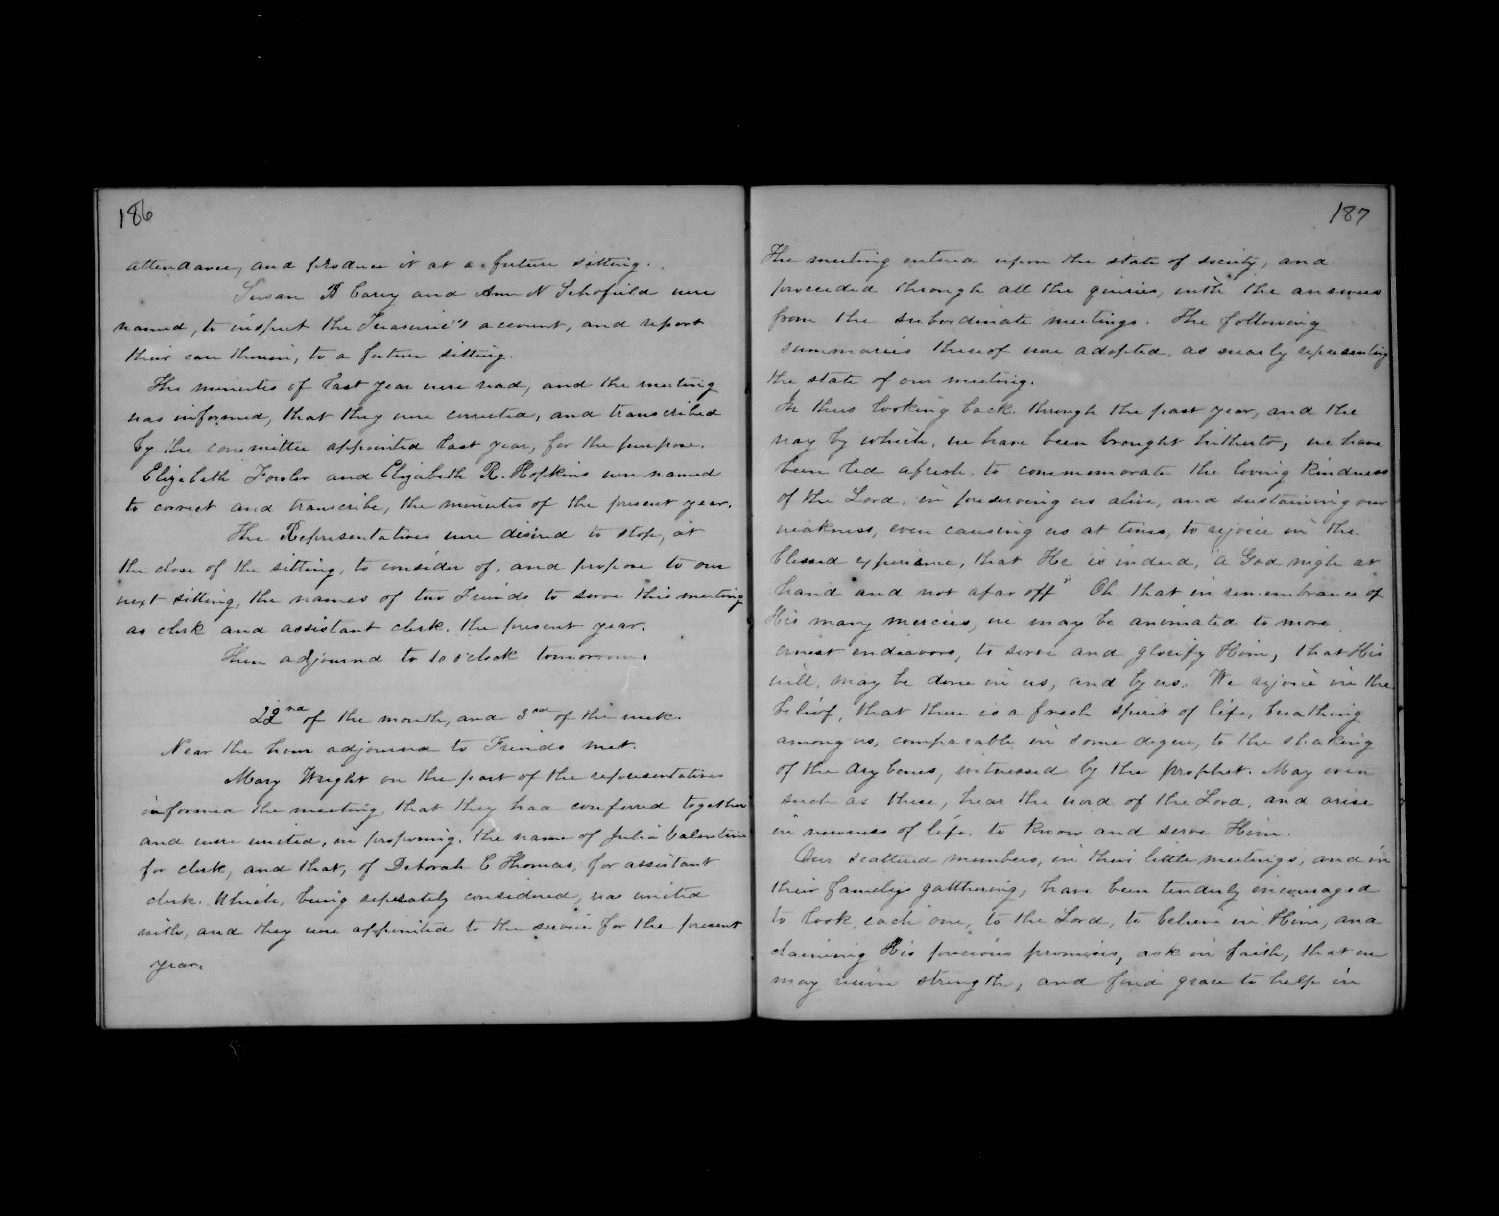 186
attendance, and produce it at a future sitting.
Susan B Carey and Ann N Schofield were
named, to inspect the Treasurer's account, and report
their care therein, to a future sitting.
The minutes of last year were read, and the meeting
was informed, that they were corrected, and transcribed
by the committee appointed last year, for the purpose.
Elizabeth Fowler and Elizabeth R. Hopkins were named
to correct and transcribe, the minutes of the present year.
The Representatives were desired to stop, at
the close of the sitting, to consider of, and propose to our
next sitting, the names of two Friends to serve this meeting
as clerk and assistant clerk, the present year.
Then adjourned to 10 o'clock tomorrow.
22nd of the month, and 3rd of the week.
Near the hour adjourned to Friends met.
Mary Wright on the part of the representatives
informed the meeting, that they had conferred together
and were united, in proposing, the name of Julia Valentine
for clerk, and that, of Deborah C Thomas, for assistant
clerk. Which, being seperately considered, was united
with, and they were appointed to the service for the present
year.
187
The meeting entered upon the state of society, and
proceeded through all the queries, with the answers
from the subordinate meetings. The following
summaries thereof were adopted, as nearly representing
the state of our meeting.
In thus looking back through the past year, and the
way by which, we have been brought hitherto, we have
been led afresh to commemorate the loving kindness
of the Lord, in preserving us alive, and sustaining our
weakness, even causing us at times, to rejoice in the
blessed experience, that He is indeed, a God nigh at
hand and not afar off" Oh that in remembrance of
His many mercies, we may be animated to more
ernest endeavors, to serve and glorify Him, that His
will, may be done in us, and by us. We rejoice in the
belief, that there is a fresh spirit of life, breathing
among us, comparable, in some degree, to the shaking
of the dry bones, witnessed by the prophet. May even
such as these, hear the word of the Lord, and arise
in newness of life, to know and serve Him.
Our scattered members, in their little meetings, and in
their family gatthering, have been tenderly encouraged
to look, each one, to the Lord, to believe in Him, and
claiming His precious promises, ask in faith, that we
may receive strength, and find grace to help in